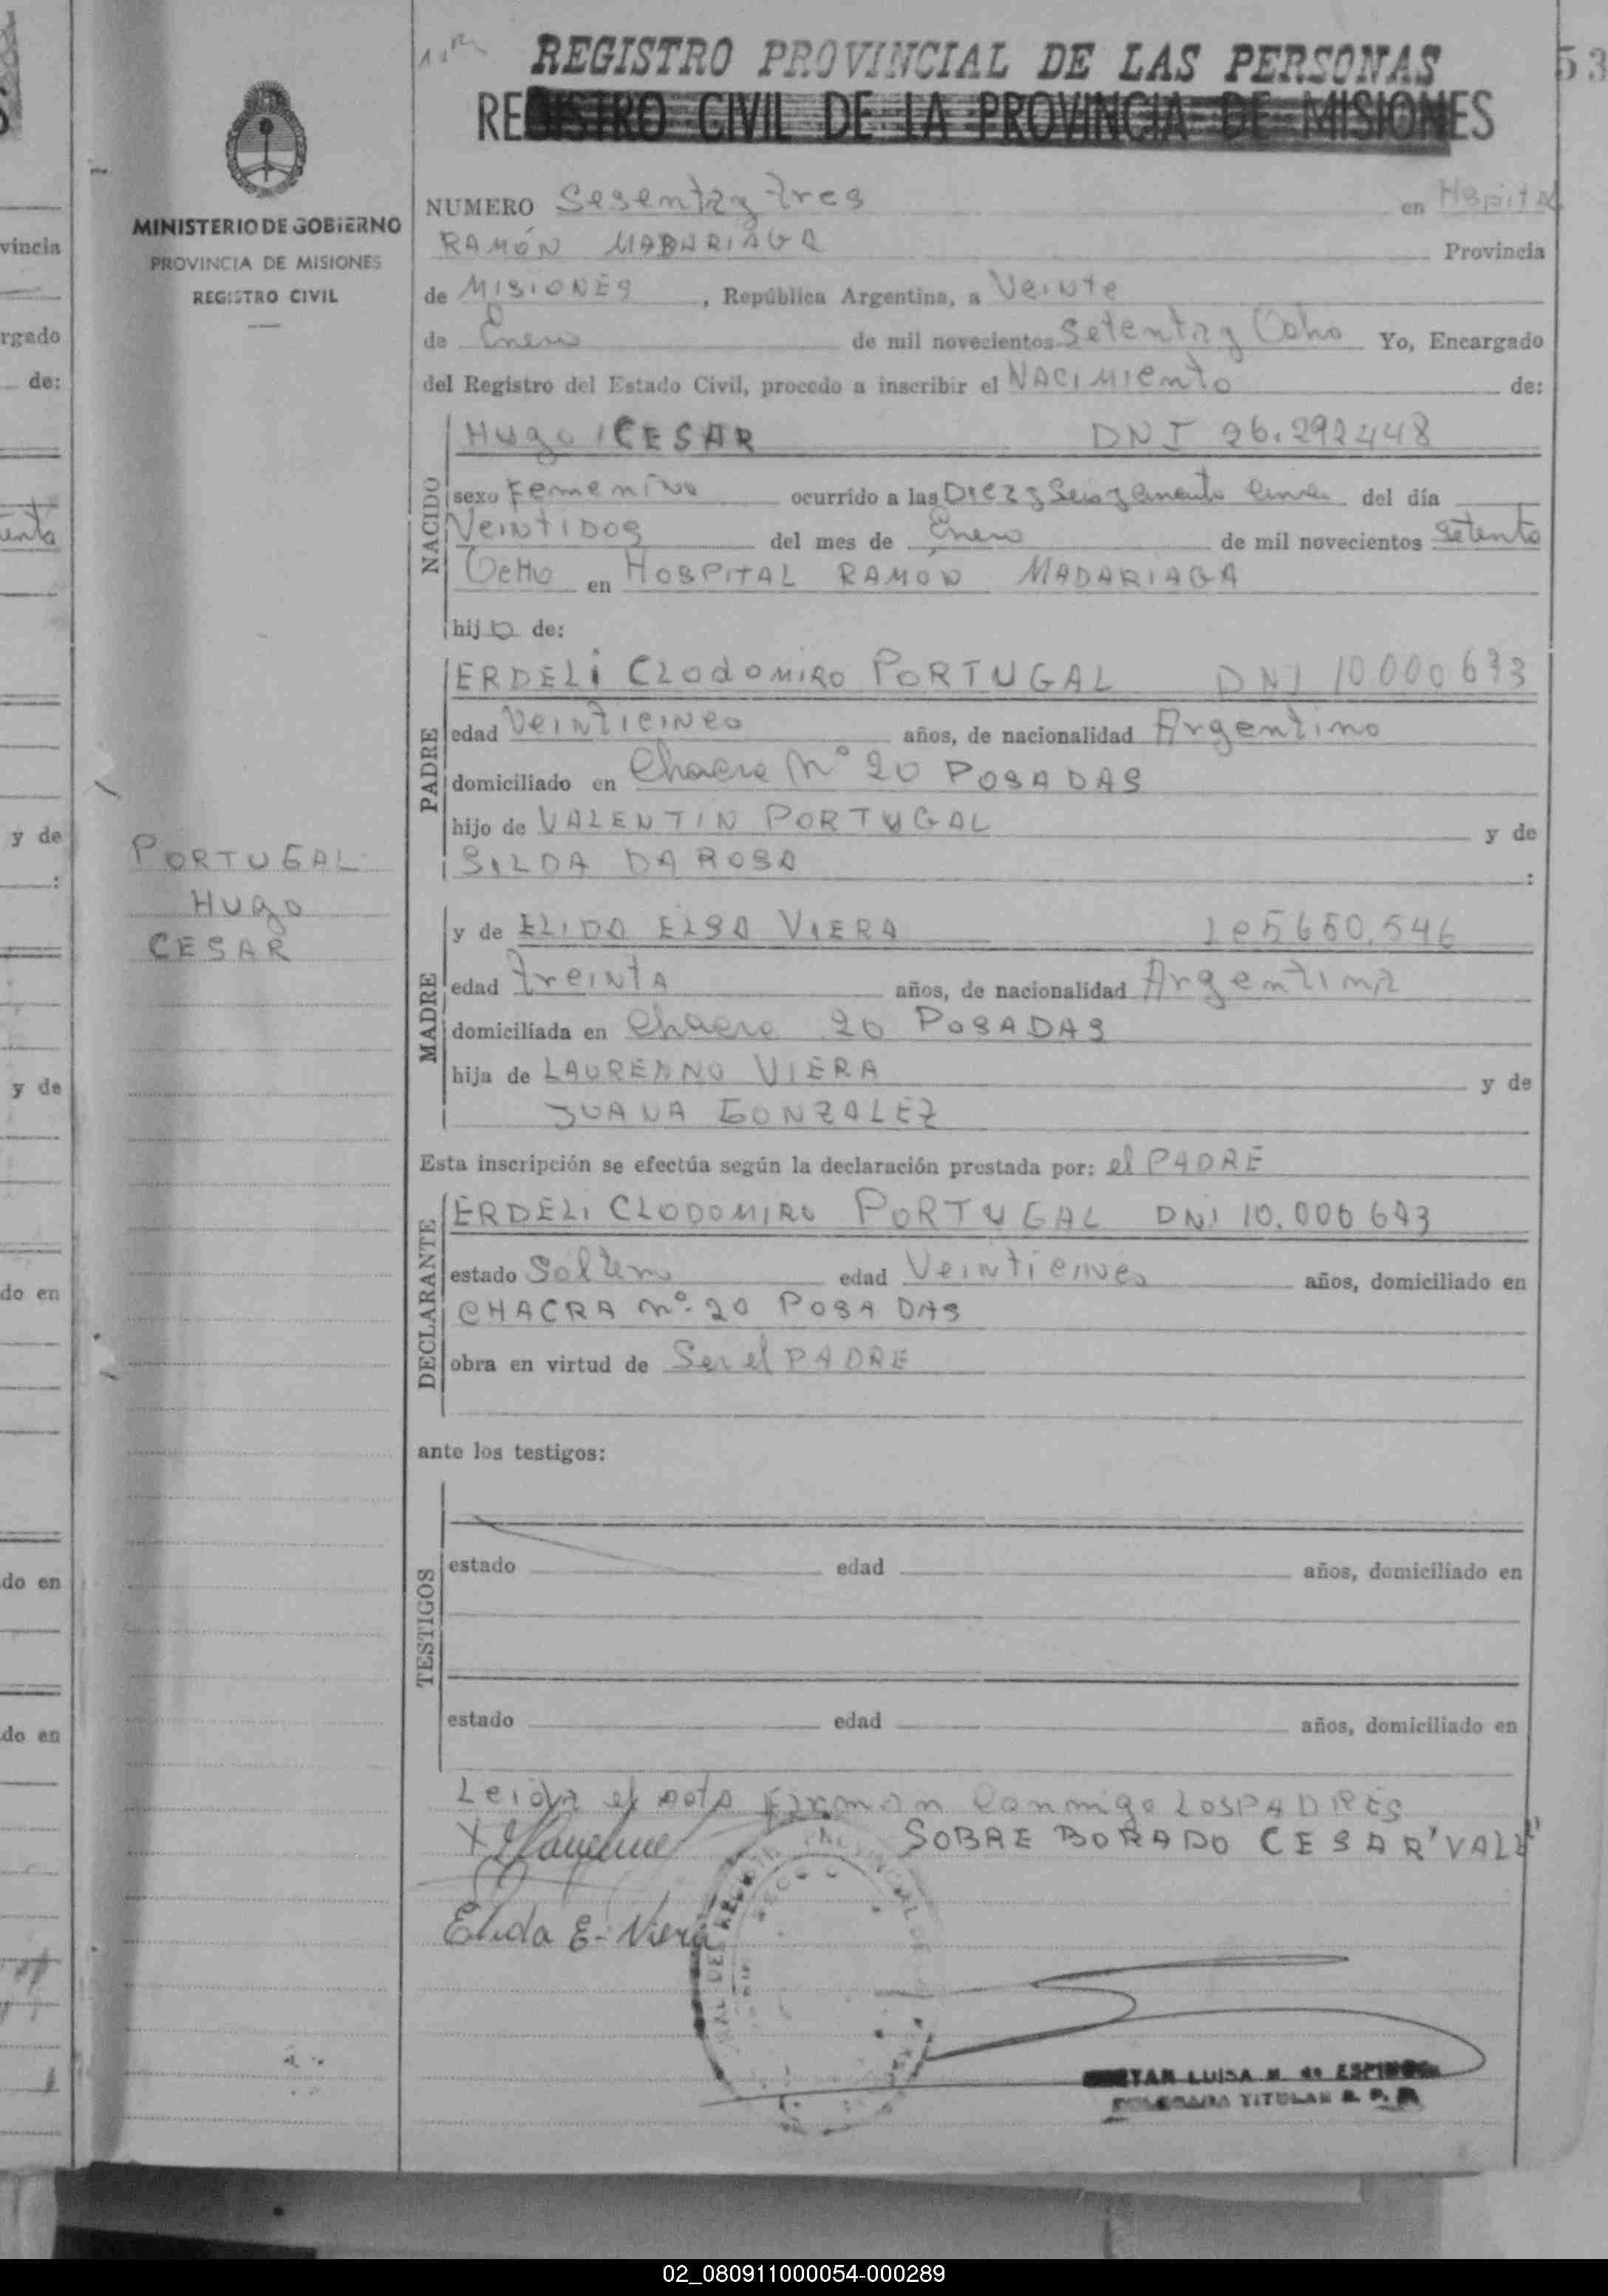 REGISTRO PROVINCIAL DE LAS PERSONAS
53
REGISTRO CIVIL DE LA PROVINCIA DE MISIONES
MINISTERIO DE GOBIERNO
PROVINCIA DE MISIONES
REGISTRO CIVIL
NUMERO Sesenta y tres en Hspital
RAMÓN MADARIAGA Provincia
de MISIONES, República Argentina, a Veinte
de Enero de mil novecientos Setenta y Ocho Yo, Encargado
del Registro del Estado Civil, procedo a inscribir el NACIMIENTO de:
NACIDO
Hugo CESAR DNI 26.292448
sexo Femenino ocurrido a las Diez y Seis y del día
Veintidos del mes de Enero de mil novecientos setenta
Ocho en HOSPITAL RAMON MADARIAGA
hijo de:
PADRE
ERDELI CLODOMIRO PORTUGAL DNI 10.000693
edad Veinticinco años, de nacionalidad Argentino
domiciliado en Chacra Nº 20 POSADAS
hijo de VALENTIN PORTUGAL y de
SILDA DA ROSA :
PORTUGAL
HUgo
CESAR
MADRE
y de ELIDA ELSA VIERA Lc5650.546
edad treinta años, de nacionalidad Argentina
domiciliada en Chacra 20 POSADAS
hija de LAUREANO VIERA y de
JUANA GONZALEZ
Esta inscripción se efectúa según la declaración prestada por: el PADRE
DECLARANTE
ERDELI CLODOMIRO PORTUGAL DNI 10.000693
estado Soltero edad Veinticinco años, domiciliado en
CHACRA Nº 20 POSADAS
obra en virtud de Ser el PADRE
ante los testigos:
TESTIGOS
estado edad años, domiciliado en
estado edad años, domiciliado en
Leida el acta firman conmigo LOS PADRES
SOBRE BORADO CESAR "VALE"
Elida E. Viera
LUISA M. de ESPINOSA
DELEGADA TITULAR R. P. P.
vincia
rgado
de:
y de
:
y de
do en
do en
do en
02_080911000054-000289